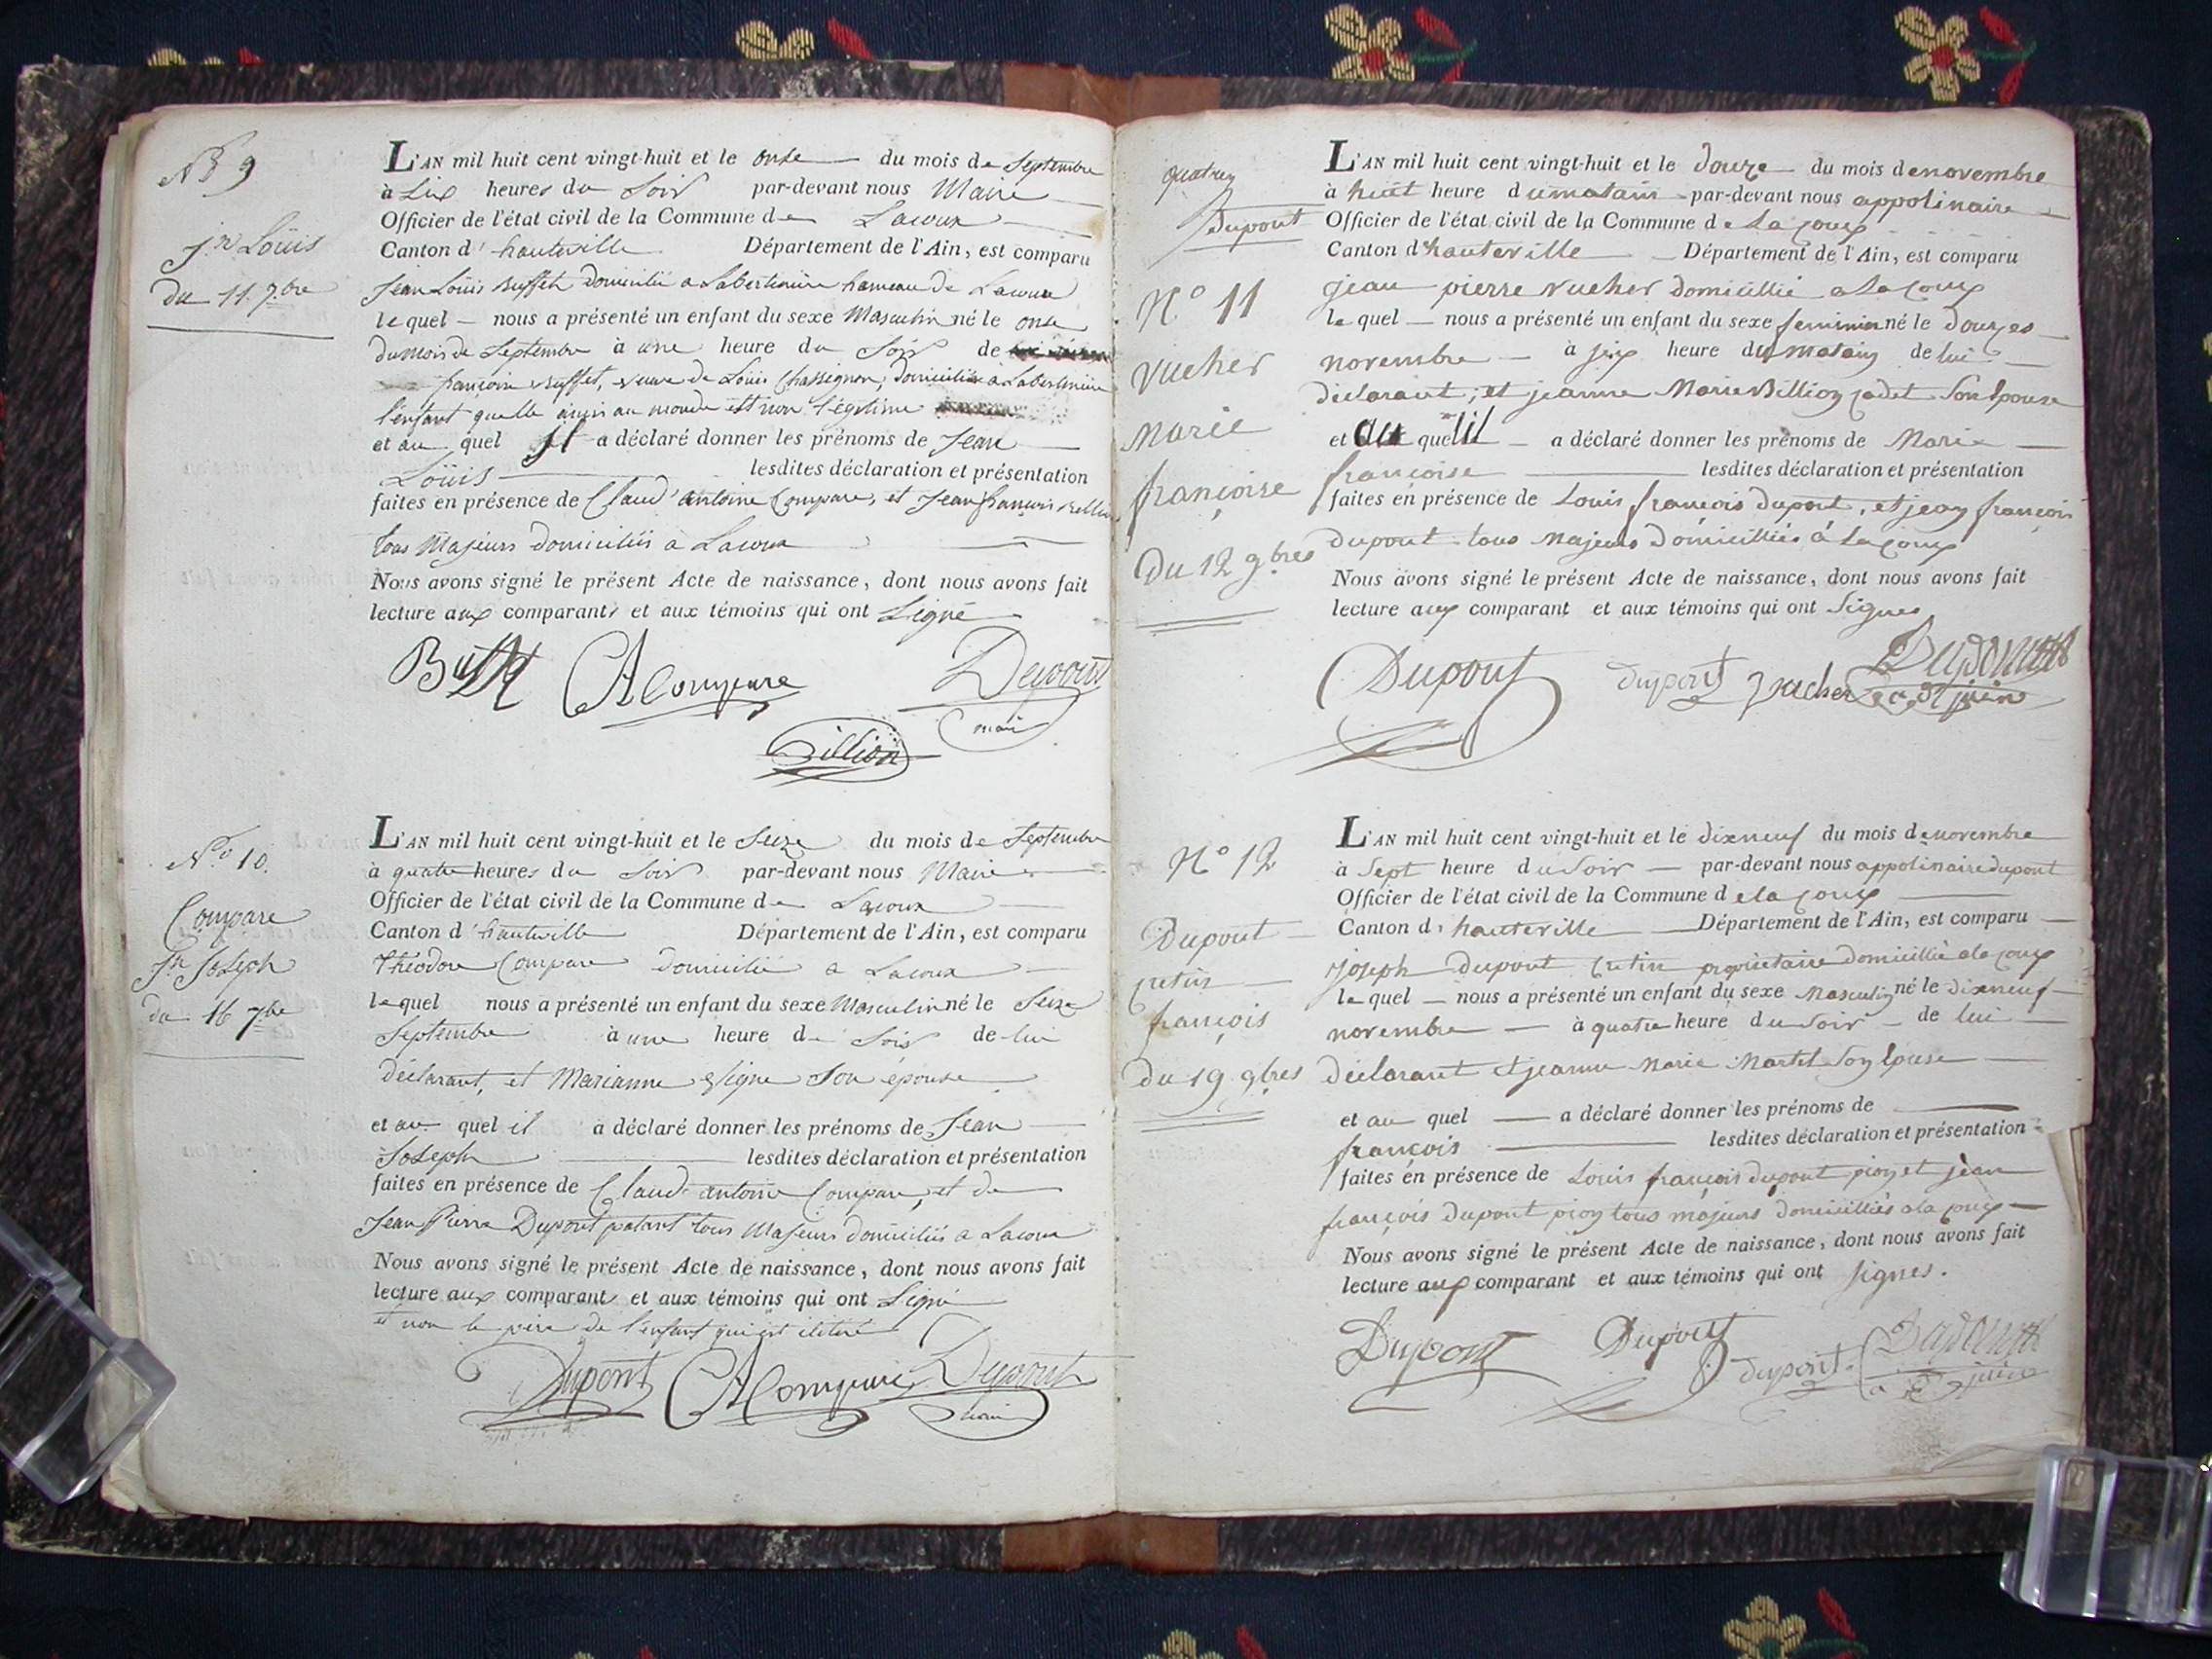 N° 9
Jn Loüis
du 11 7bre
L'AN mil huit cent vingt-huit et le onze du mois de Septembre
à Six heures du Soir par-devant nous Maire
Officier de l'état civil de la Commune de Lacoux
Canton d'hauteville Département de l'Ain, est comparu
Jean Loüis Buffet domicilié a Labertinière hameau de Lacoux
lequel nous a présenté un enfant du sexe Masculin né le onze
du mois de Septembre à une heure du Soir de
françoise Buffet, veuve de Loüis Chassignon, domiciliée a Labertinière
l'enfant quelle a mis au monde est non légitime
et au quel il a déclaré donner les prénoms de Jean
Loüis lesdites déclaration et présentation
faites en présence de Claud' antoine Compare, et Jean françois Billion
tous Majeurs domiciliés a Lacoux
Nous avons signé le présent Acte de naissance, dont nous avons fait
lecture aux comparants et aux témoins qui ont Signé
Buffet CAcompare Dupont
maire
Billion
N° 10.
Compare
Jn Joseph
du 16 7bre
L'AN mil huit cent vingt-huit et le Seize du mois de Septembre
à quatre heures du Soir par-devant nous Maire
Officier de l'état civil de la Commune de Lacoux
Canton d'hauteville Département de l'Ain, est comparu
Théodore Compare domicilié a Lacoux
lequel nous a présenté un enfant du sexe Masculin né le Seize
Septembre à une heure de Soir de lui
déclarant, et Marianne son épouse
et au quel il a déclaré donner les prénoms de Jean
Joseph lesdites déclaration et présentation
faites en présence de Claud antoine Compare, et de
Jean Pierre Dupont patant tous Majeurs domiciliés a Lacoux
Nous avons signé le présent Acte de naissance, dont nous avons fait
lecture aux comparants et aux témoins qui ont Signé
et non le père de l'enfant qui est iliteré
Dupont CAcompare Dupont
maire
Dupont
N° 11
vucher
marie
françoise
Du 12 9bres
L'AN mil huit cent vingt-huit et le douze du mois de novembre
à huit heure du matain par-devant nous appolinaire
Officier de l'état civil de la Commune de la coux
Canton d'hauteville Département de l'Ain, est comparu
jean pierre vucher domicillié a la coux
lequel nous a présenté un enfant du sexe feminin né le douzes
novembre à six heure du matain de lui
déclarant; et jeanne Marie Billion cadet Son Epouse
et au quel il a déclaré donner les prénoms de Marie
françoise lesdites déclaration et présentation
faites en présence de Louis françois dupont, et jean françois
dupont tous Majeurs domicilliés à la coux
Nous avons signé le présent Acte de naissance, dont nous avons fait
lecture aux comparant et aux témoins qui ont Signes
Dupont dupont vucher Dupont
N° 12
Dupont
cretin
françois
du 19 9bres
L'AN mil huit cent vingt-huit et le dixneuf du mois de novembre
à Sept heure du Soir par-devant nous appolinaire dupont
Officier de l'état civil de la Commune de la coux
Canton d'hauteville Département de l'Ain, est comparu
joseph dupont Cretin propriétaire domicillié a la coux
lequel nous a présenté un enfant du sexe Masculin né le dixneuf
novembre à quatre heure du Soir de lui
déclarant et jeanne Marie Martel Son Epouse
et au quel a déclaré donner les prénoms de
françois lesdites déclaration et présentation
faites en présence de Louis françois dupont pion et jean
françois dupont pion tous majeurs domicilliés a la coux
Nous avons signé le présent Acte de naissance, dont nous avons fait
lecture aux comparant et aux témoins qui ont signes.
Dupont Dupont dupont Dupont